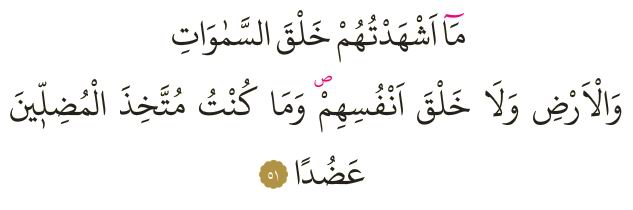 مَآ اَشْهَدْتُهُمْ خَلْقَ السَّمٰوَاتِ
وَالْاَرْضِ وَلَا خَلْقَ اَنْفُسِهِمْۖ وَمَا كُنْتُ مُتَّخِذَ الْمُضِلّ۪ينَ
عَضُدًا ٥١